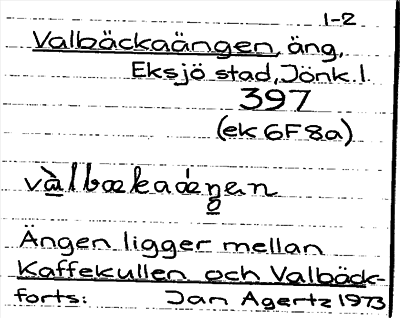 1-2
Valbäckaängen, äng,
Eksjö stad, Jönk. l.
397
(ek 6F 8a)
Ängen ligger mellan
Kaffekullen och Valbäck-
forts: Jan Agertz 1973